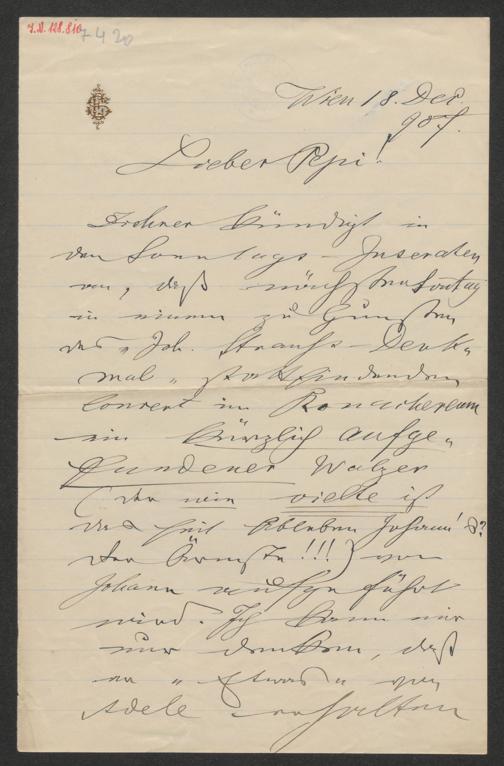 I.N. 128.810
7420
Wien 18. Dec
907.
Lieber Pepi!
kündigt in
den Sonntags-Inseraten
an, daß nächsten Sontag
in einem zu Gunsten
des „Joh. Strauß-Denk„
mal„ stattfindenden
Concert im Ronacherium
ein kürzlich aufge„
fundener Walzer
(der wie vielte ist
das seit Ableben Johann's?
Der Ärmste!!!) von
Johann aufgeführt
wird. Ich kann mir
nur denken, daß
er „Etwas“ von
Adele erhalten